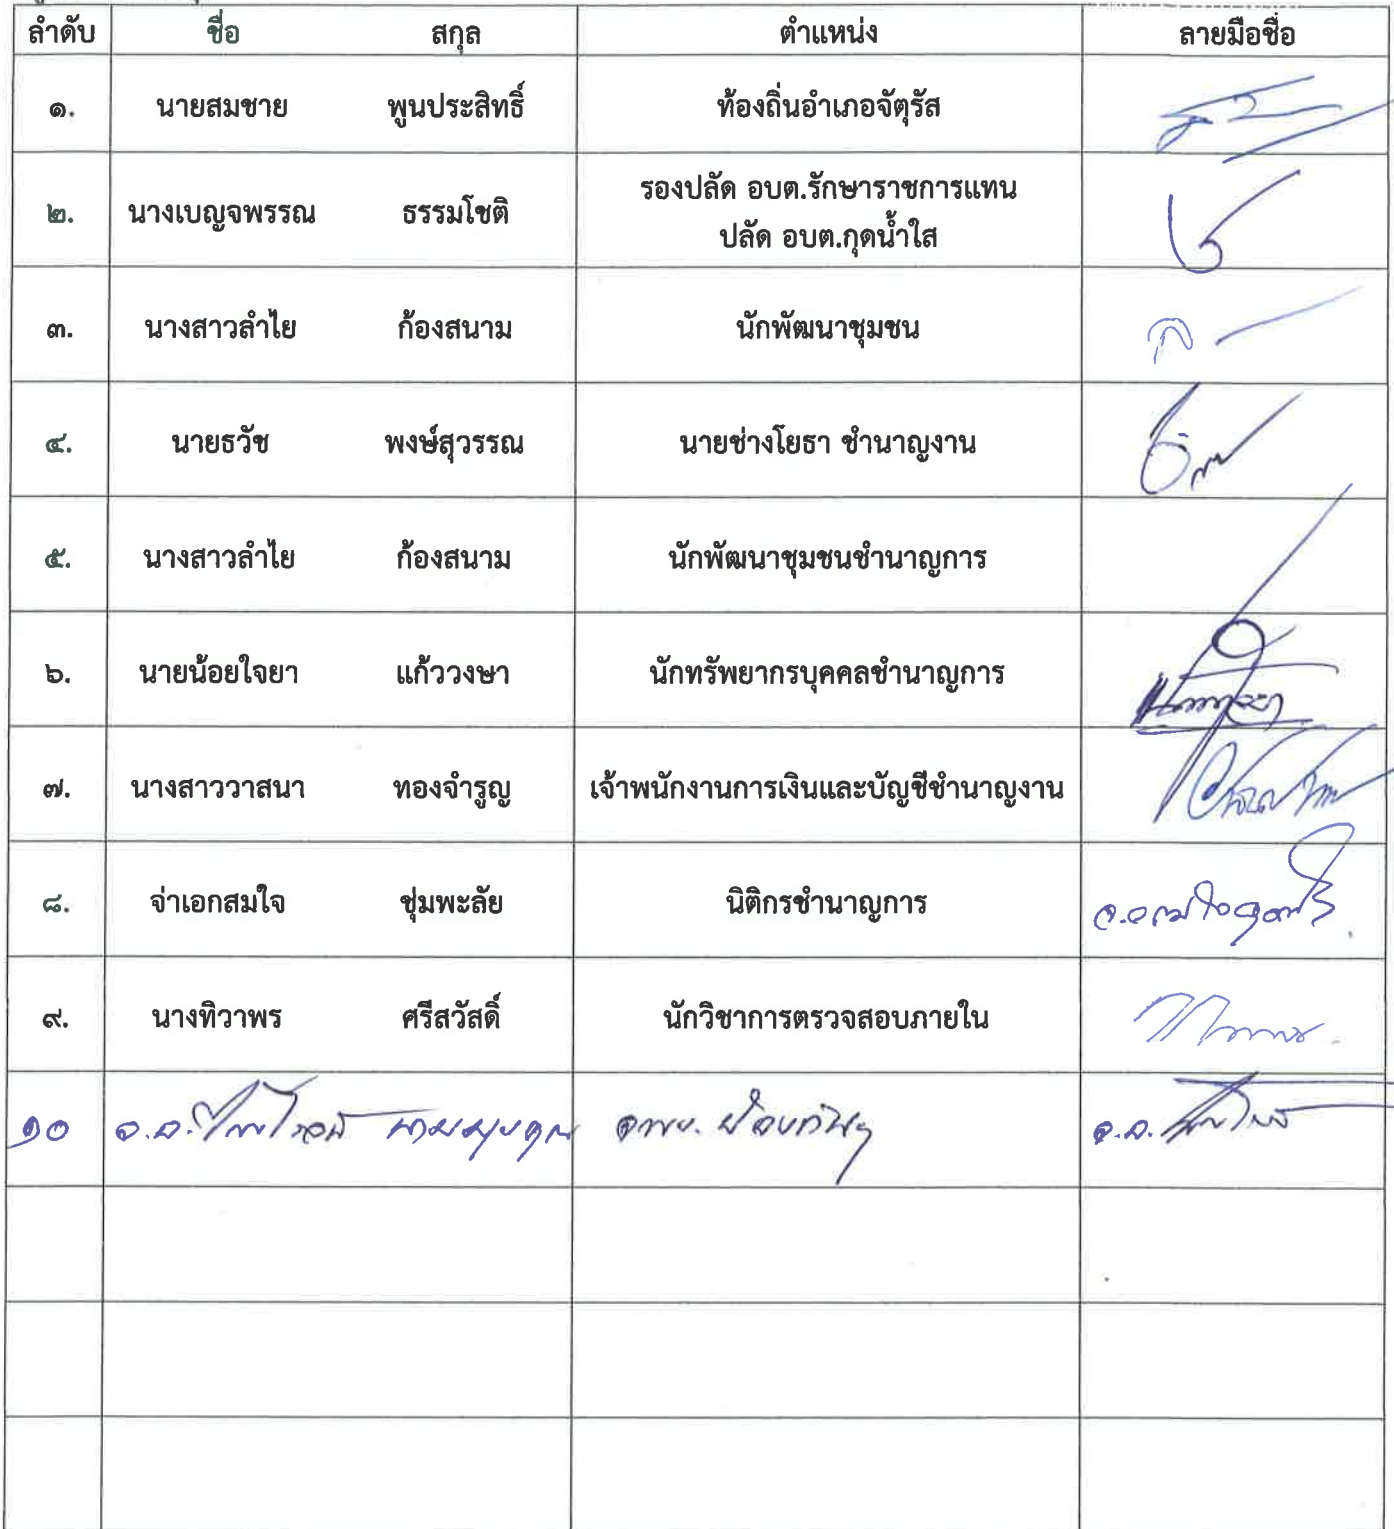 ลำดับ ชื่อ สกุล ตำแหน่ง ลายมือชื่อ
๑. นายสมชาย พูนประสิทธิ์ ท้องถิ่นอำเภอจัตุรัส
๒. นางเบญจพรรณ ธรรมโชติ รองปลัด อบต.รักษาราชการแทน
ปลัด อบต.กุดน้ำใส
๓. นางสาวลำไย ก้องสนาม นักพัฒนาชุมชน
๔. นายธวัช พงษ์สุวรรณ นายช่างโยธา ชำนาญงาน
๕. นางสาวลำไย ก้องสนาม นักพัฒนาชุมชนชำนาญการ
๖. นายน้อยใจยา แก้ววงษา นักทรัพยากรบุคคลชำนาญการ
๗. นางสาววาสนา ทองจำรูญ เจ้าพนักงานการเงินและบัญชีชำนาญงาน
๘. จ่าเอกสมใจ ชุ่มพะลัย นิติกรชำนาญการ
๙. นางทิวาพร ศรีสวัสดิ์ นักวิชาการตรวจสอบภายใน
๑๐ จ.อ. จพง. ป้องกันฯ จ.อ.